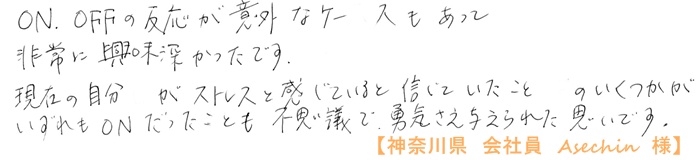 ON. OFFの反応が意外なケースもあって
非常に興味深かったです.
現在の自分 がストレスと感じていると信じていたこと のいくつかが
いずれもONだったことも不思議で、勇気さえ与えられた思いです。
【神奈川県 会社員 Asechin 様】